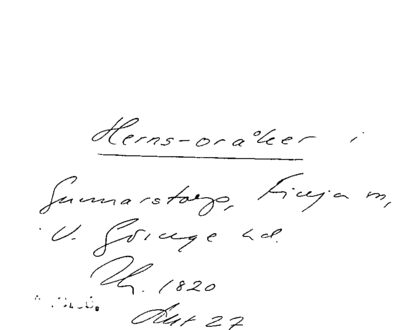 Herns-oråker i
Gunnarstorp, Finja sn,
V. Göinge hd.
Th. 1820
Akt 27